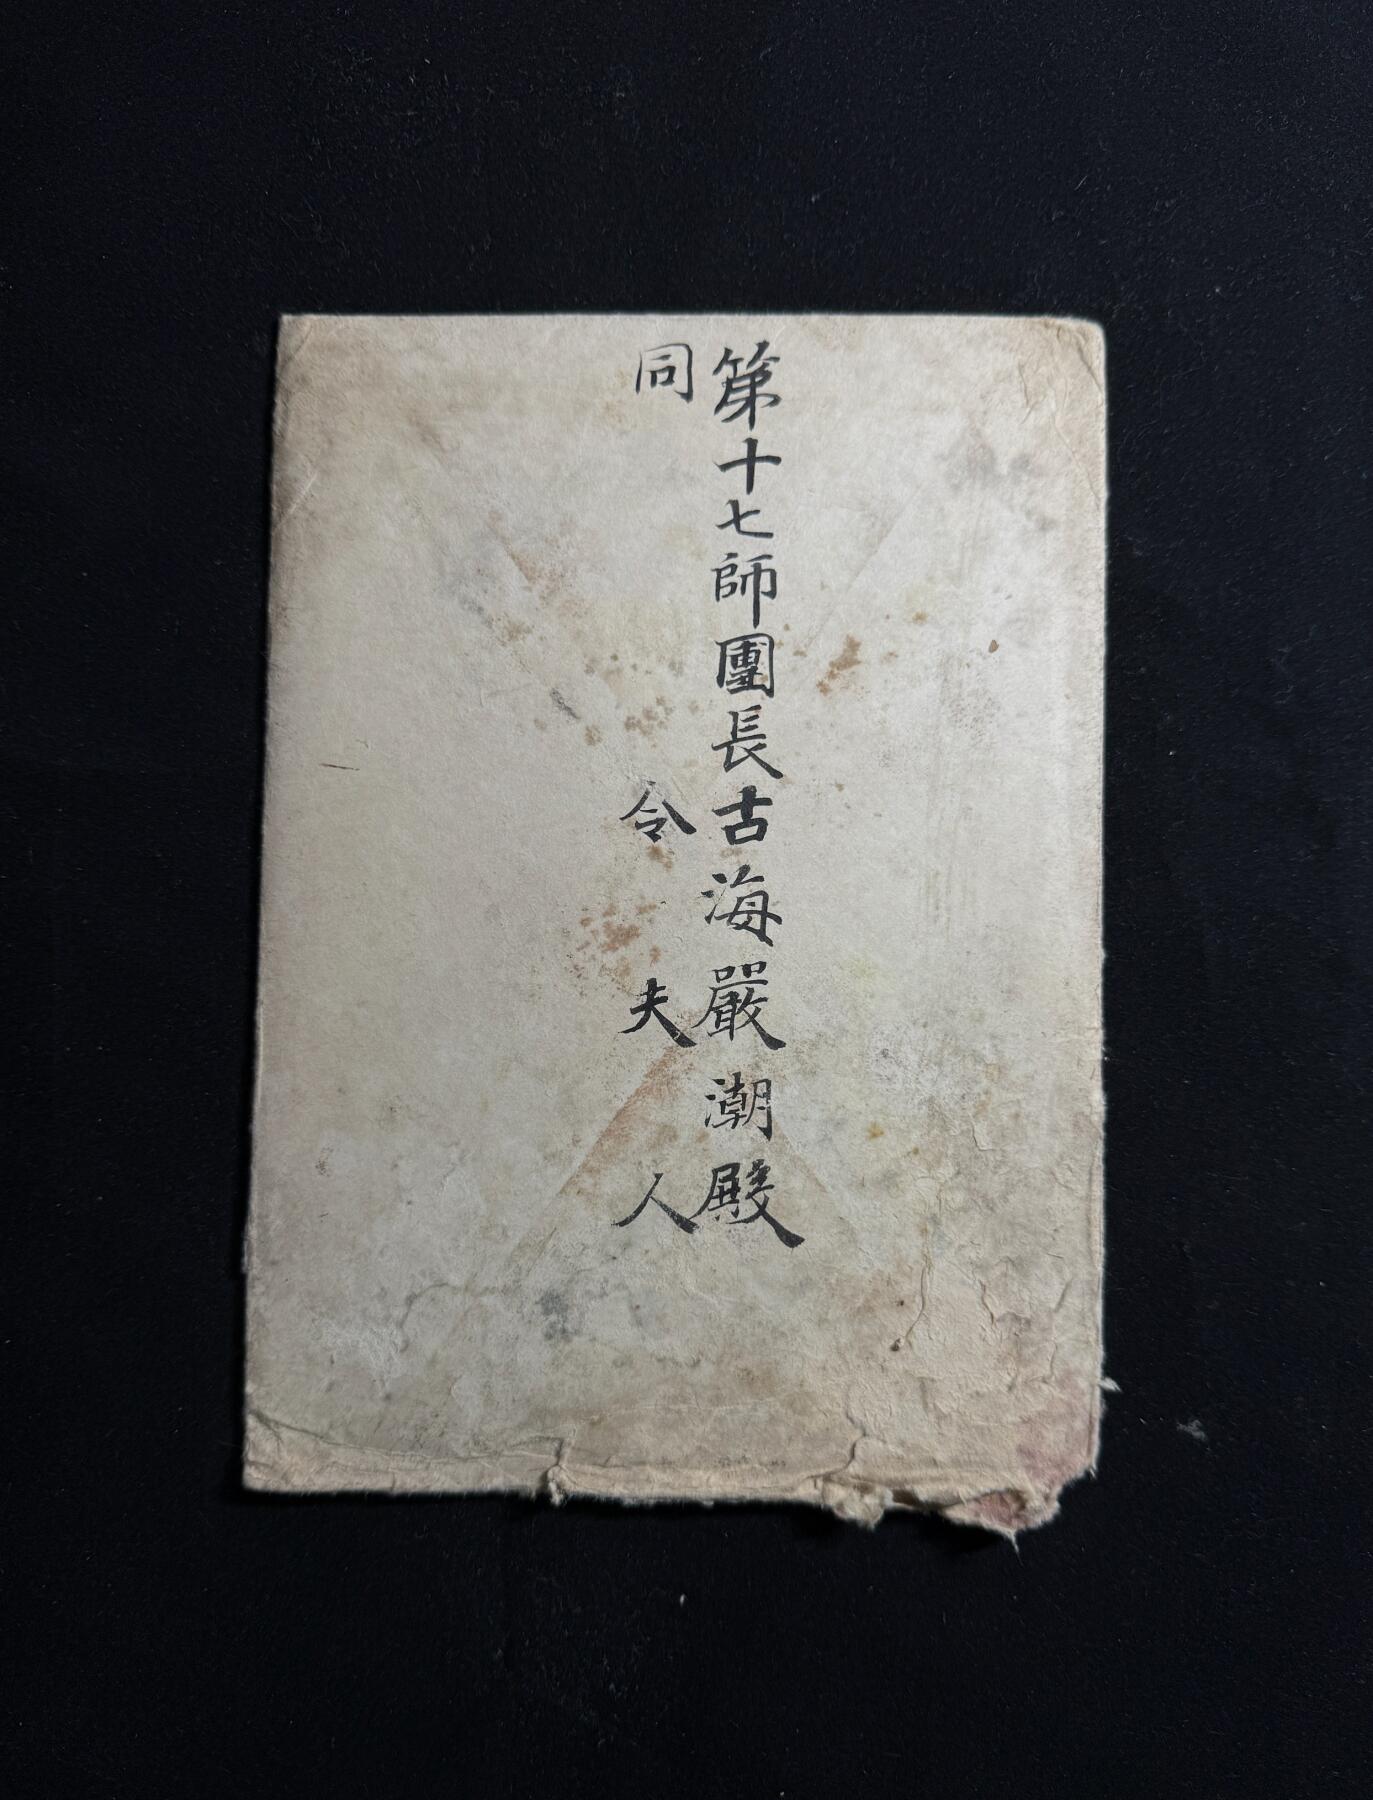 第十七師團長古海嚴潮殿
同令夫人